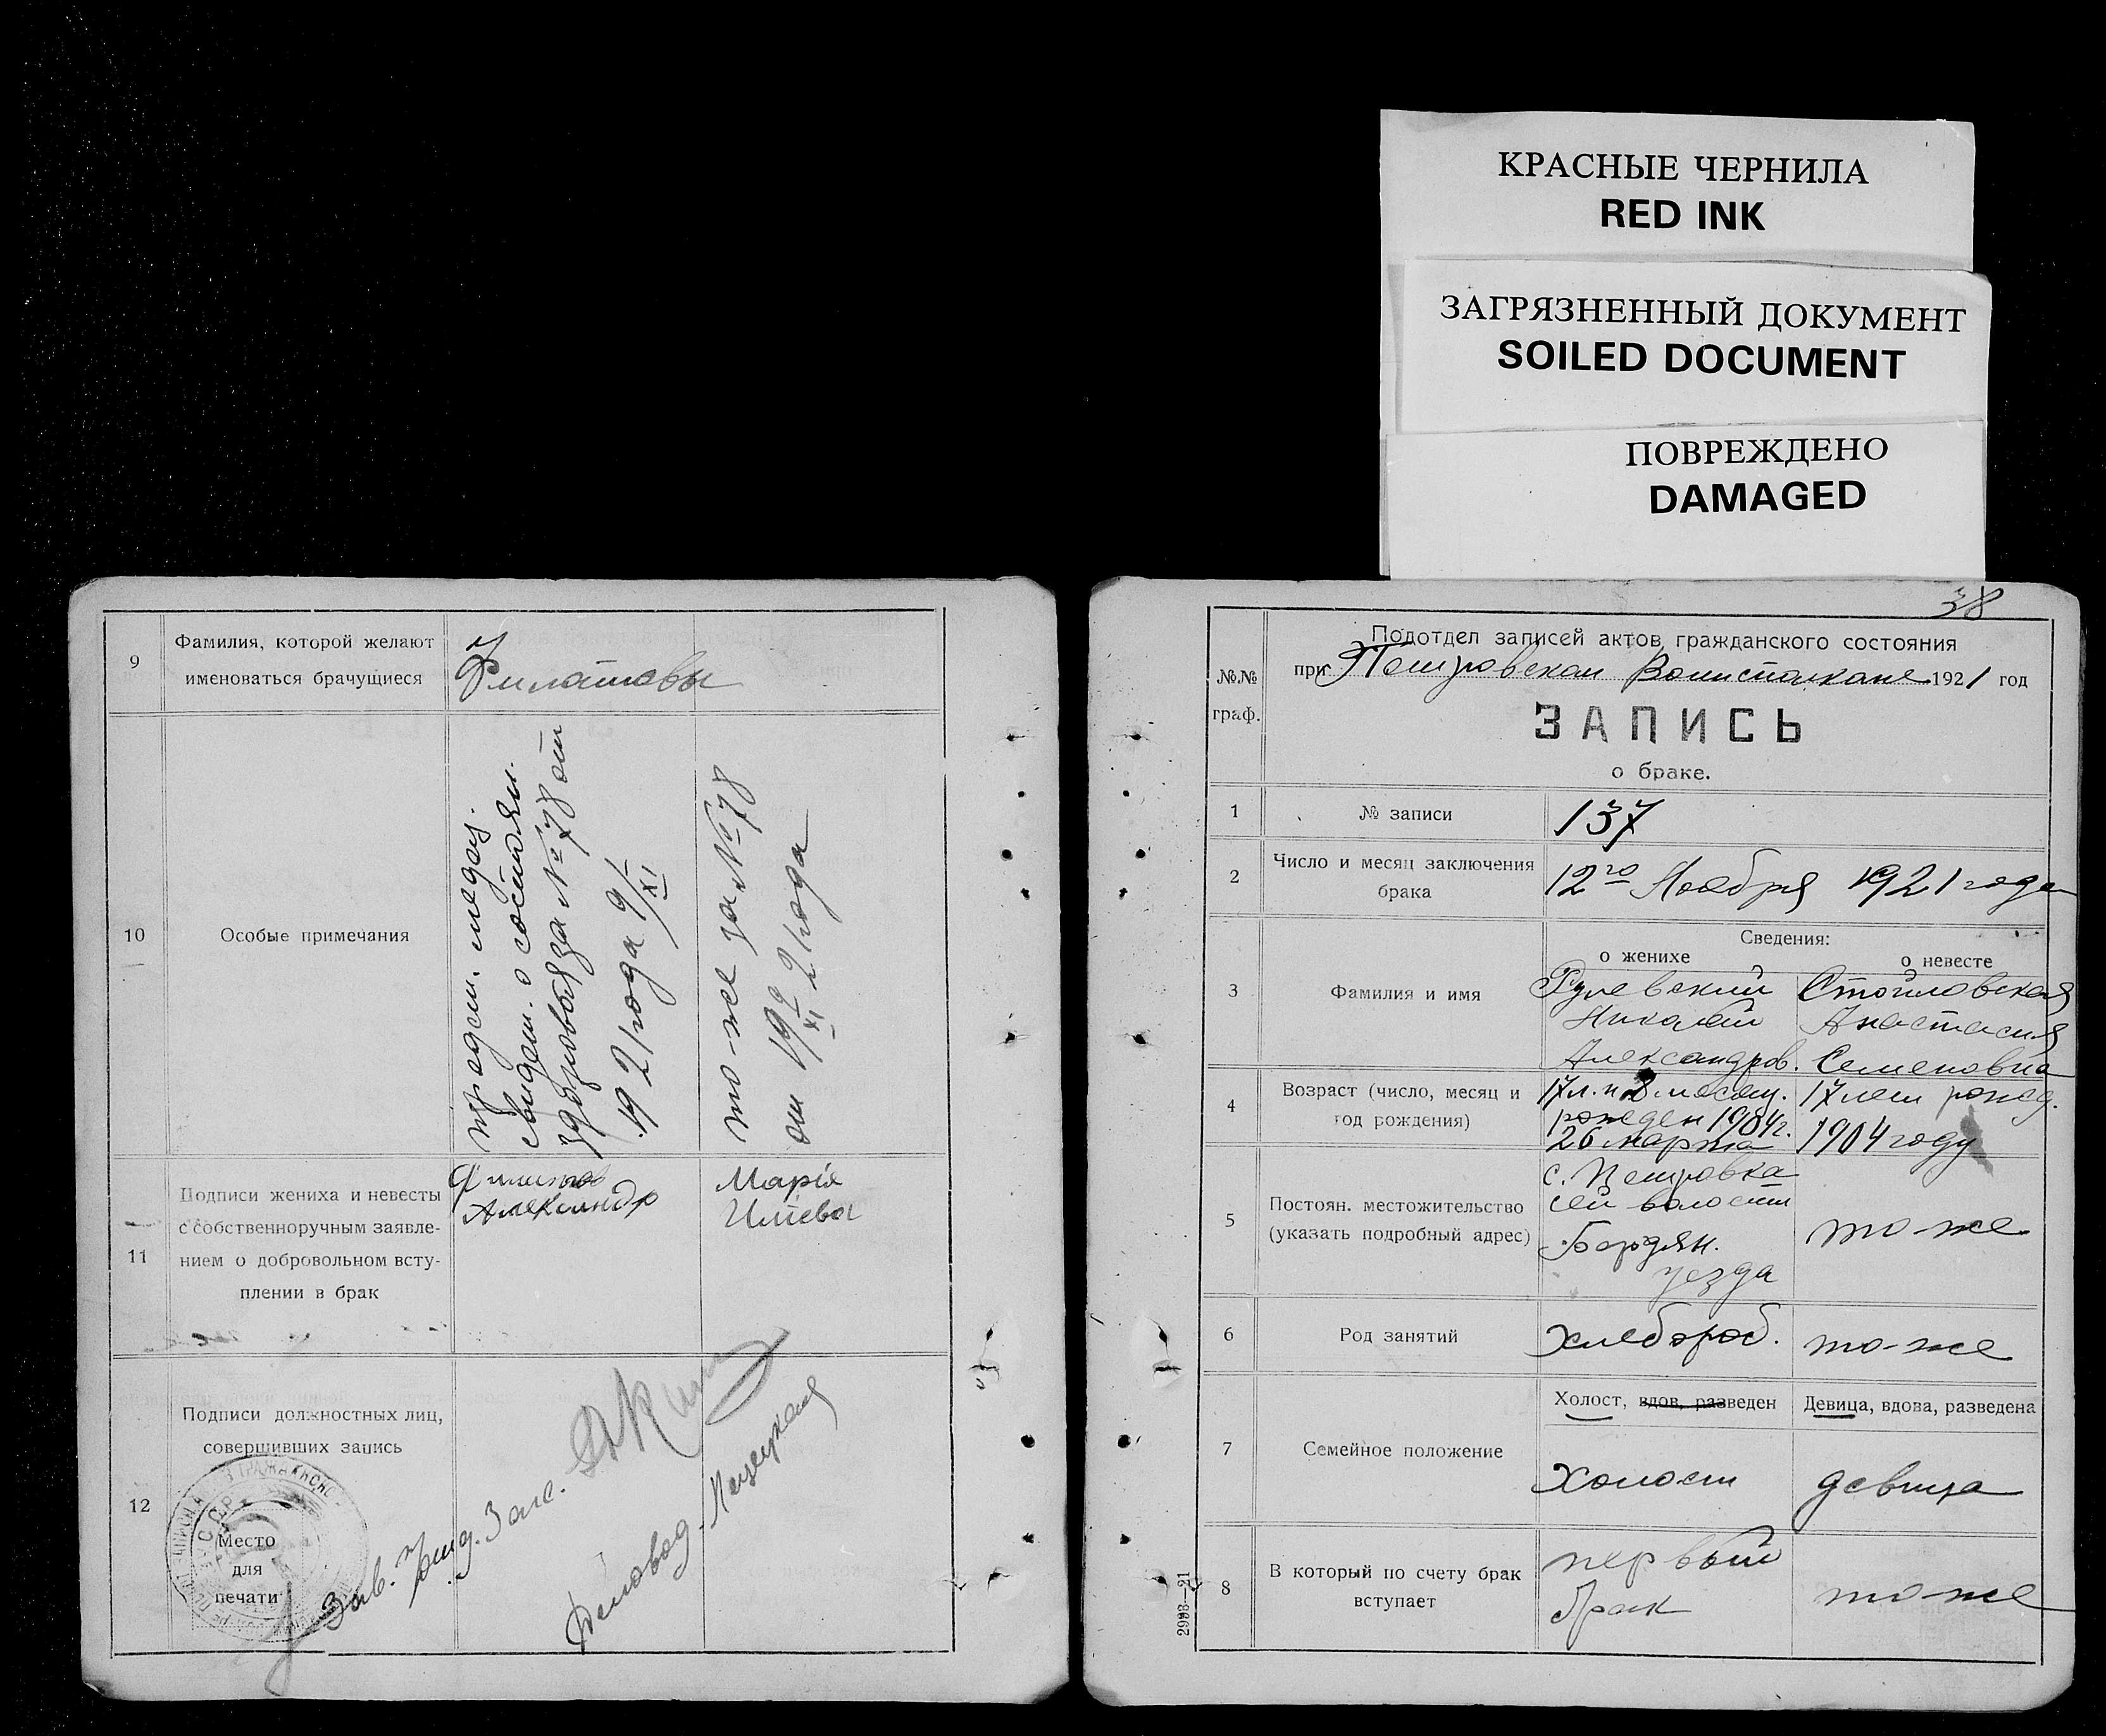 КРАСНЫЕ ЧЕРНИЛА
RED INK
ЗАГРЯЗНЕННЫЙ ДОКУМЕНТ
SOILED DOCUMENT
ПОВРЕЖДЕНО
DAMAGED
9
Фамилия, которой желают
именоваться брачущиеся
Филатовы
10
Особые примечания
предст. медиц.
свидет. о состоян.
здоровья за № 78 от
1921 года 9/XI
то-же за № 78
от 9/XI 1921 года
11
Подписи жениха и невесты
с собственноручным заявле-
нием о добровольном всту-
плении в брак
Александр
Марія
12
Подписи должностных лиц,
совершивших запись
Место
для
печати
Зав. Загс.
Деловод.
38
№№
граф.
Подотдел записей актов гражданского состояния
при Петровском Волисполкоме 1921 год
ЗАПИСЬ
о браке.
1
№ записи
137
2
Число и месяц заключения
брака
12го Ноября 1921 года
3
Фамилия и имя
Сведения:
о женихе
о невесте
Николай
Александров.
Стойловская
Анастасия
Семеновна
4
Возраст (число, месяц и
год рождения)
17 л. и 8 месяц.
рожден 1904 г.
26 марта
17 лет рожд.
1904 году
5
Постоян. местожительство
(указать подробный адрес)
с. Петровка
сей волости
Бердян.
уезда
то-же
6
Род занятий
хлебороб.
то-же
7
Семейное положение
Холост, вдов, разведен
Девица, вдова, разведена
холост
девица
8
В который по счету брак
вступает
первый
брак
то-же
2993—21